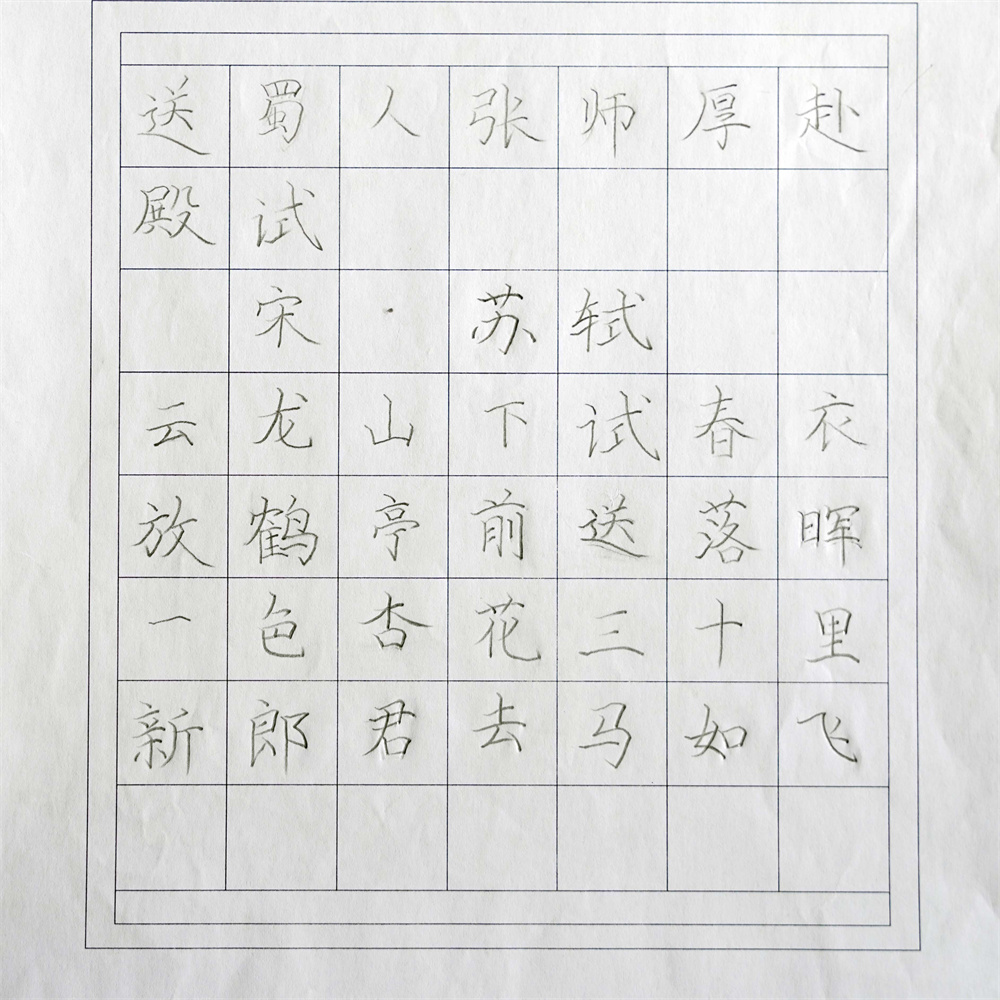 送蜀人张师厚赴
殿试
宋·苏轼
云龙山下试春衣
放鹤亭前送落晖
一色杏花三十里
新郎君去马如飞